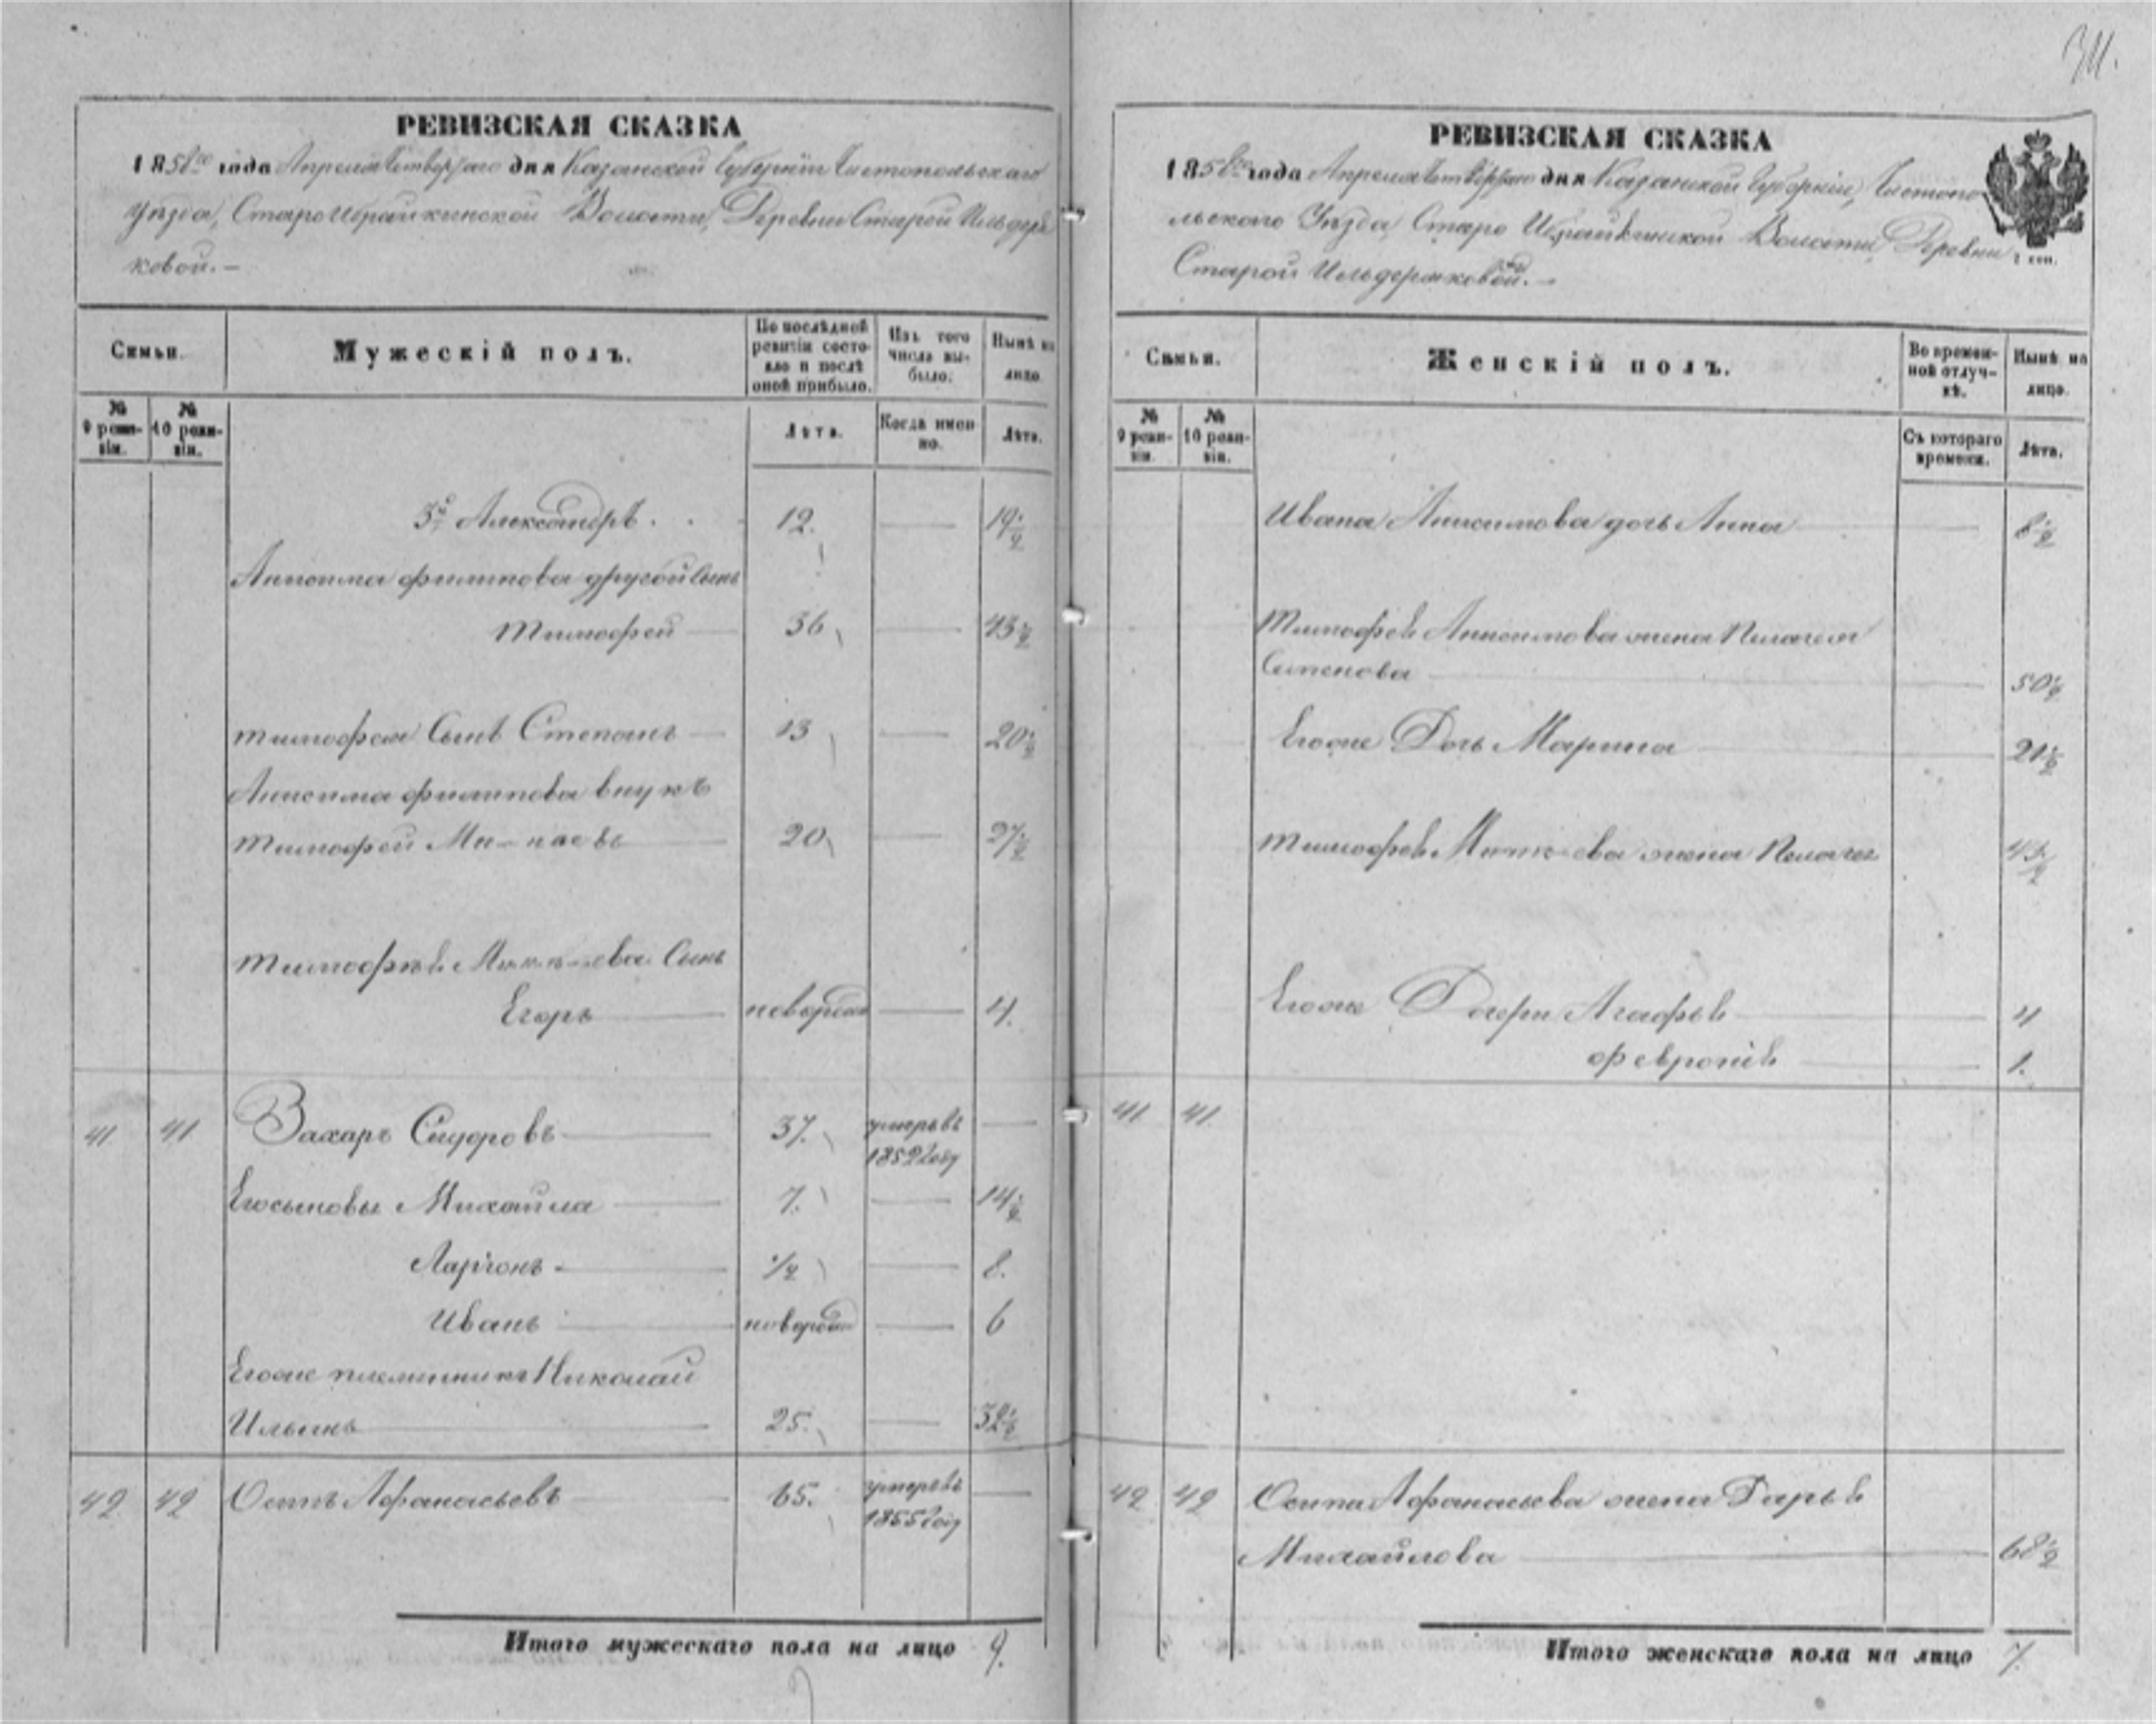 311.
РЕВИЗСКАЯ СКАЗКА
1858го года Апреля Четвертаго дня Казанской Губернiи Чистопольскаго
Уѣзда, Старо Ибрайкинской Волости, Деревни Старой Ильдеря
ковой.—
Семьи.
Мужескій полъ.
По послѣдней ревизіи состо- яло и послѣ оной прибыло.
Изъ того числа вы- было.
Нынѣ на лицо.
№ 9 реви- зіи.
№ 10 реви- зіи.
Лѣта.
Когда имен- но.
Лѣта.
3й Александръ. 12. — 19 1/2
Анисима Филипова другой сынъ
Тимофей — 36 — 43 1/2
Тимофея Сынъ Степанъ — 13 — 20 1/2
Анисима Филипова внукъ
Тимофей Ми-наевъ 20 — 27 1/2
Тимофѣя Сынъ
Егоръ — новорожд — 4.
41 41 Захаръ Сидоровъ — 37. умеръ въ 1852 году —
Его сыновья Михайла — 7. — 14 1/2
Ларіонъ — 1/2 — 8.
Иванъ — новорожд — 6
Егоже племянникъ Николай
Ильинъ — 25. — 32 1/2
42 42 Осипъ Афанасьевъ — 65. умеръ въ 1855 году —
Итого мужескаго пола на лицо 9.
РЕВИЗСКАЯ СКАЗКА
1858го года Апреля Четвертаго дня Казанской Губерніи, Чистопо
льскаго Уѣзда, Старо Ибрайкинской Волости, Деревни
Старой Ильдеряковой.—
Семьи.
Женскій полъ.
Во времен- ной отлуч- кѣ.
Нынѣ на лицо.
№ 9 реви- зіи.
№ 10 реви- зіи.
Съ котораго времени.
Лѣта.
Ивана Анисимова дочь Анна — 8 1/2
Тимофея Анисимова жена Пелагея
Семенова — 50 1/2
Егоже Дочь Марина — 21 1/2
Тимофея жена Пелагея
Егоже Дочери Агафья — 4
Февронія — 1.
41 41.
42 42 Осипа Афанасьева жена Дарья
Михайлова — 68 1/2
Итого женскаго пола на лицо 7.